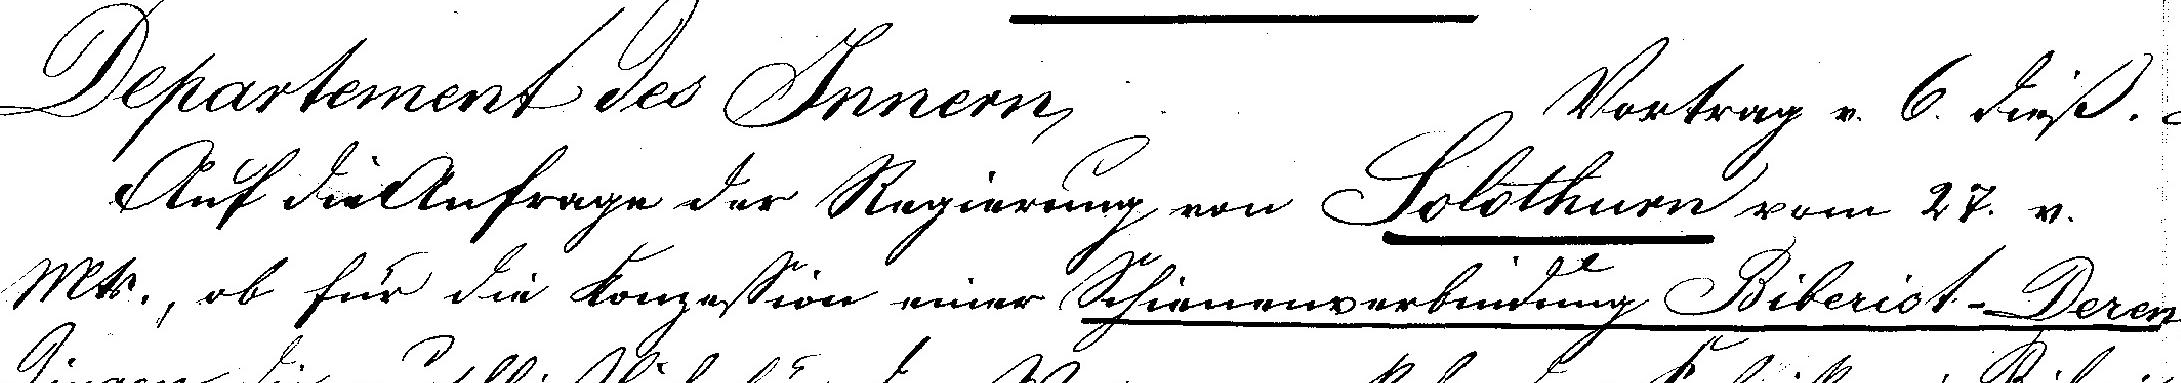 Departement des Innern, Vortrag v. 6. dieß.
Auf die Anfrage der Regierung von Solothurn vom 27. v.
Mts., ob für die Konzession einer Schienenverbindung Biberist-Deren